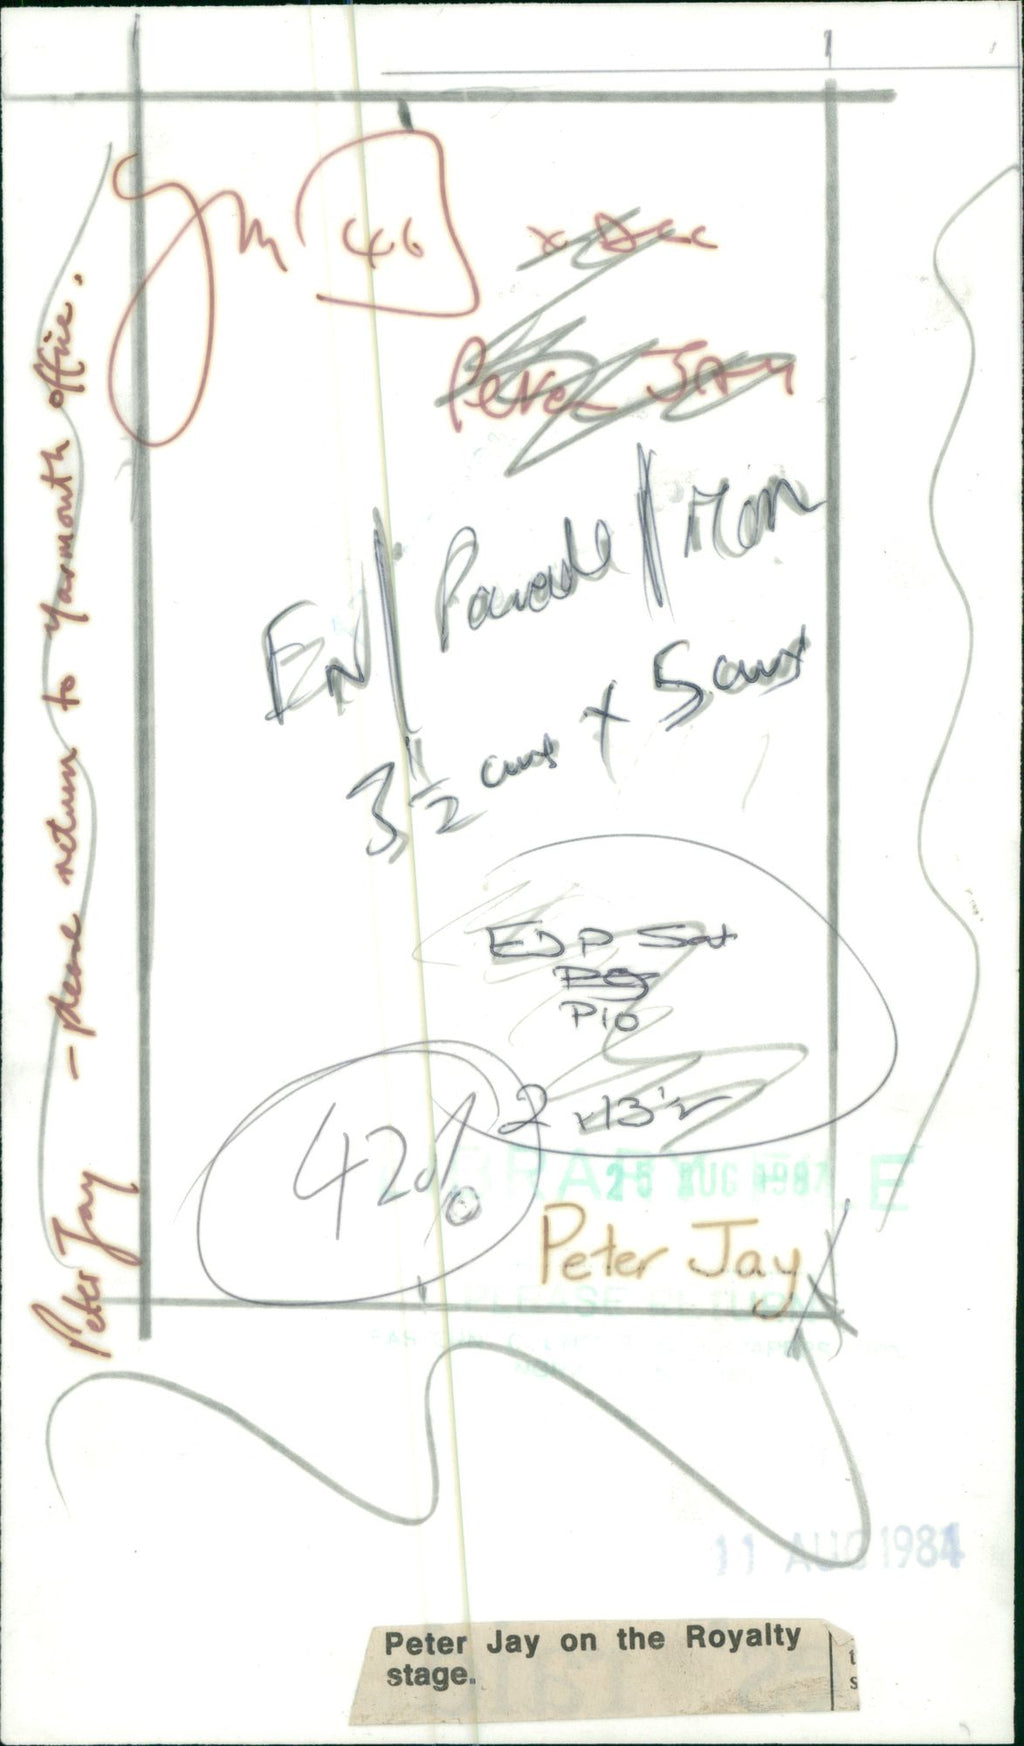 Ym 46
Peter Jay
EN / Parade / Mon
3 1/2 cms x 5 cms
EDP Sat
P8
P10
2 x 13 1/2
42%
LIBRARY FILE
25 AUG 1984
Peter Jay
PLEASE RETURN
11 AUG 1984
Peter Jay on the Royalty
stage.
Peter Jay - please return to Yarmouth office.